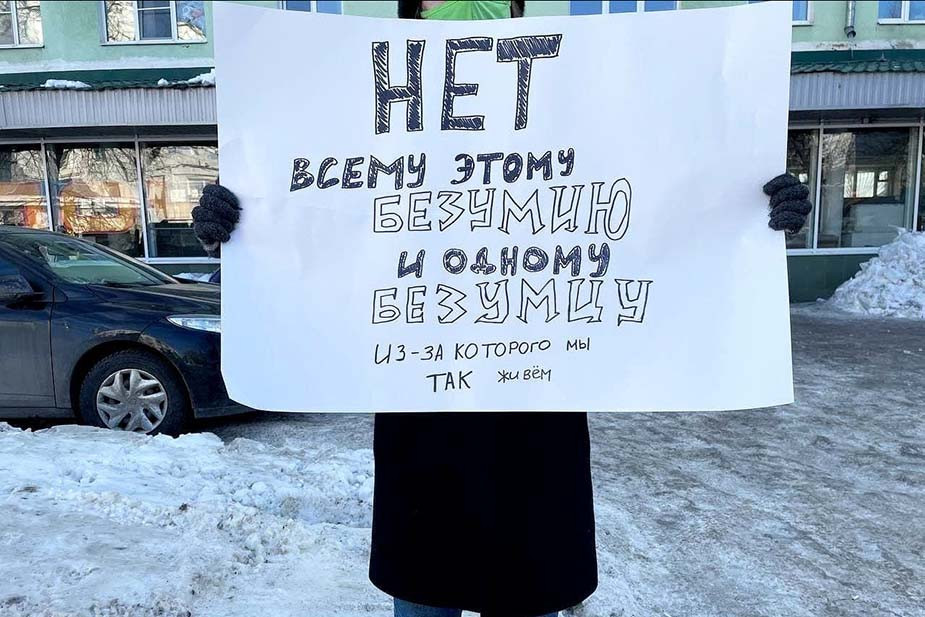 НЕТ
ВСЕМУ ЭТОМУ
БЕЗУМИЮ
И ОДНОМУ
БЕЗУМЦУ
ИЗ-ЗА КОТОРОГО МЫ
ТАК ЖИВЁМ